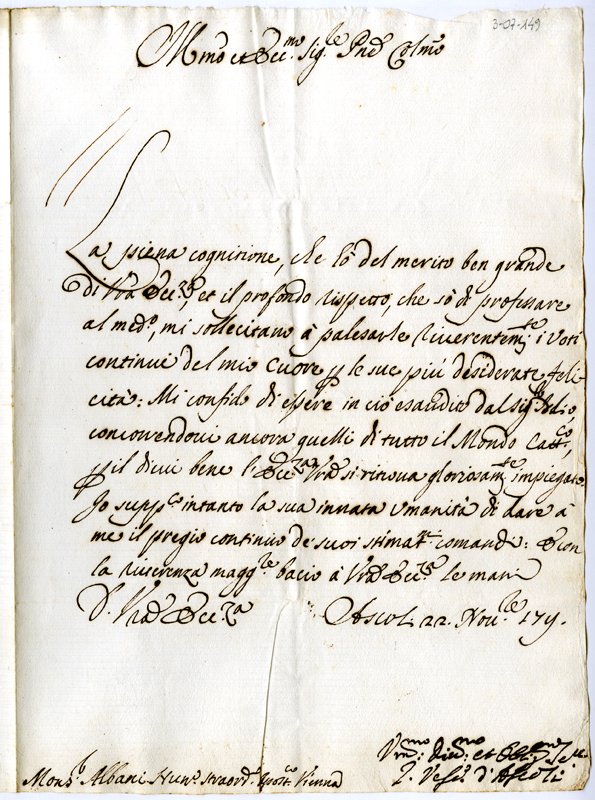 3-07-149
Ill.mo et Ecc.mo Sig.re Pne Colmo
La piena cognitione, che hò del merito ben grande
di Vra Ecc.za, et il profondo rispetto, che sò di professare
al med.o, mi sollecitano à palesarle riverentem.te i voti
continui del mio cuore p le sue più desiderate feli
cità: Mi confido di essere in ciò esaudito dal Sig.re Idio
concorrendovi ancora quelli di tutto il Mondo Catt.co,
p il di cui bene l'Ecc.za Vra si ritrova gloriosam.te impiegata.
Io supp.co intanto la sua innata umanità di dare à
me il pregio continuo de suoi stimat.mi comandi: E con
la riverenza magg.re bacio à Vra Ecc.za le mani
D. Vra Ecc.za Ascoli 22. Nov.re
Vmo Div.mo et Obb.mo
Il Vesc.o d'Ascoli
Mons.r Albani Nun.o Straord.o Apost.co Vienna